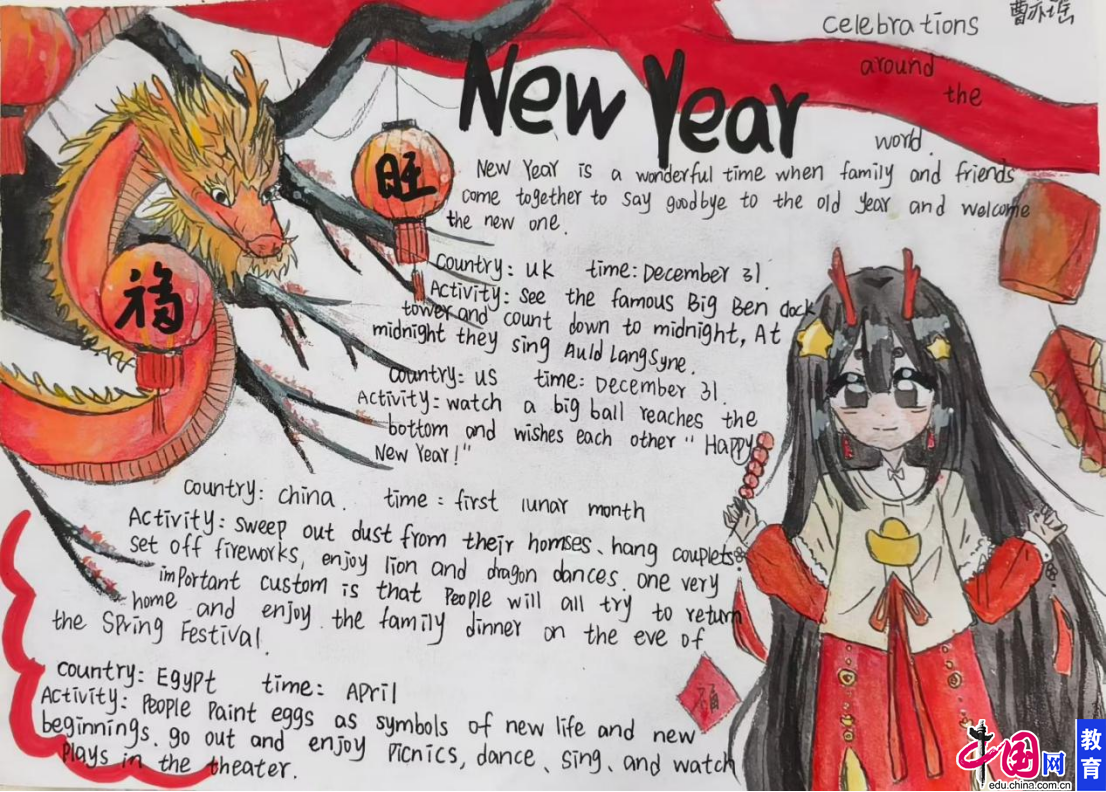 celebrations
around
the
world.
曹亦瑶
New Year
New Year is a wonderful time when family and friends
come together to say goodbye to the old year and welcome
the new one.
旺
福
country: UK time: December 31.
Activity: see the famous Big Ben clock
tower and count down to midnight, At
midnight they sing Auld Lang Syne.
country: US time: December 31.
Activity: watch a big ball reaches the
bottom and wishes each other "Happy
New Year!"
country: china. time: first lunar month
Activity: sweep out dust from their homses、hang couplets、
set off fireworks, enjoy lion and dragon dances. one very
important custom is that people will all try to return
home and enjoy the family dinner on the eve of
the Spring Festival.
country: Egypt time: April
Activity: People Paint eggs as symbols of new life and new
beginnings. go out and enjoy picnics, dance、sing、and watch
plays in the theater.
福
中国网
edu.china.com.cn
教育